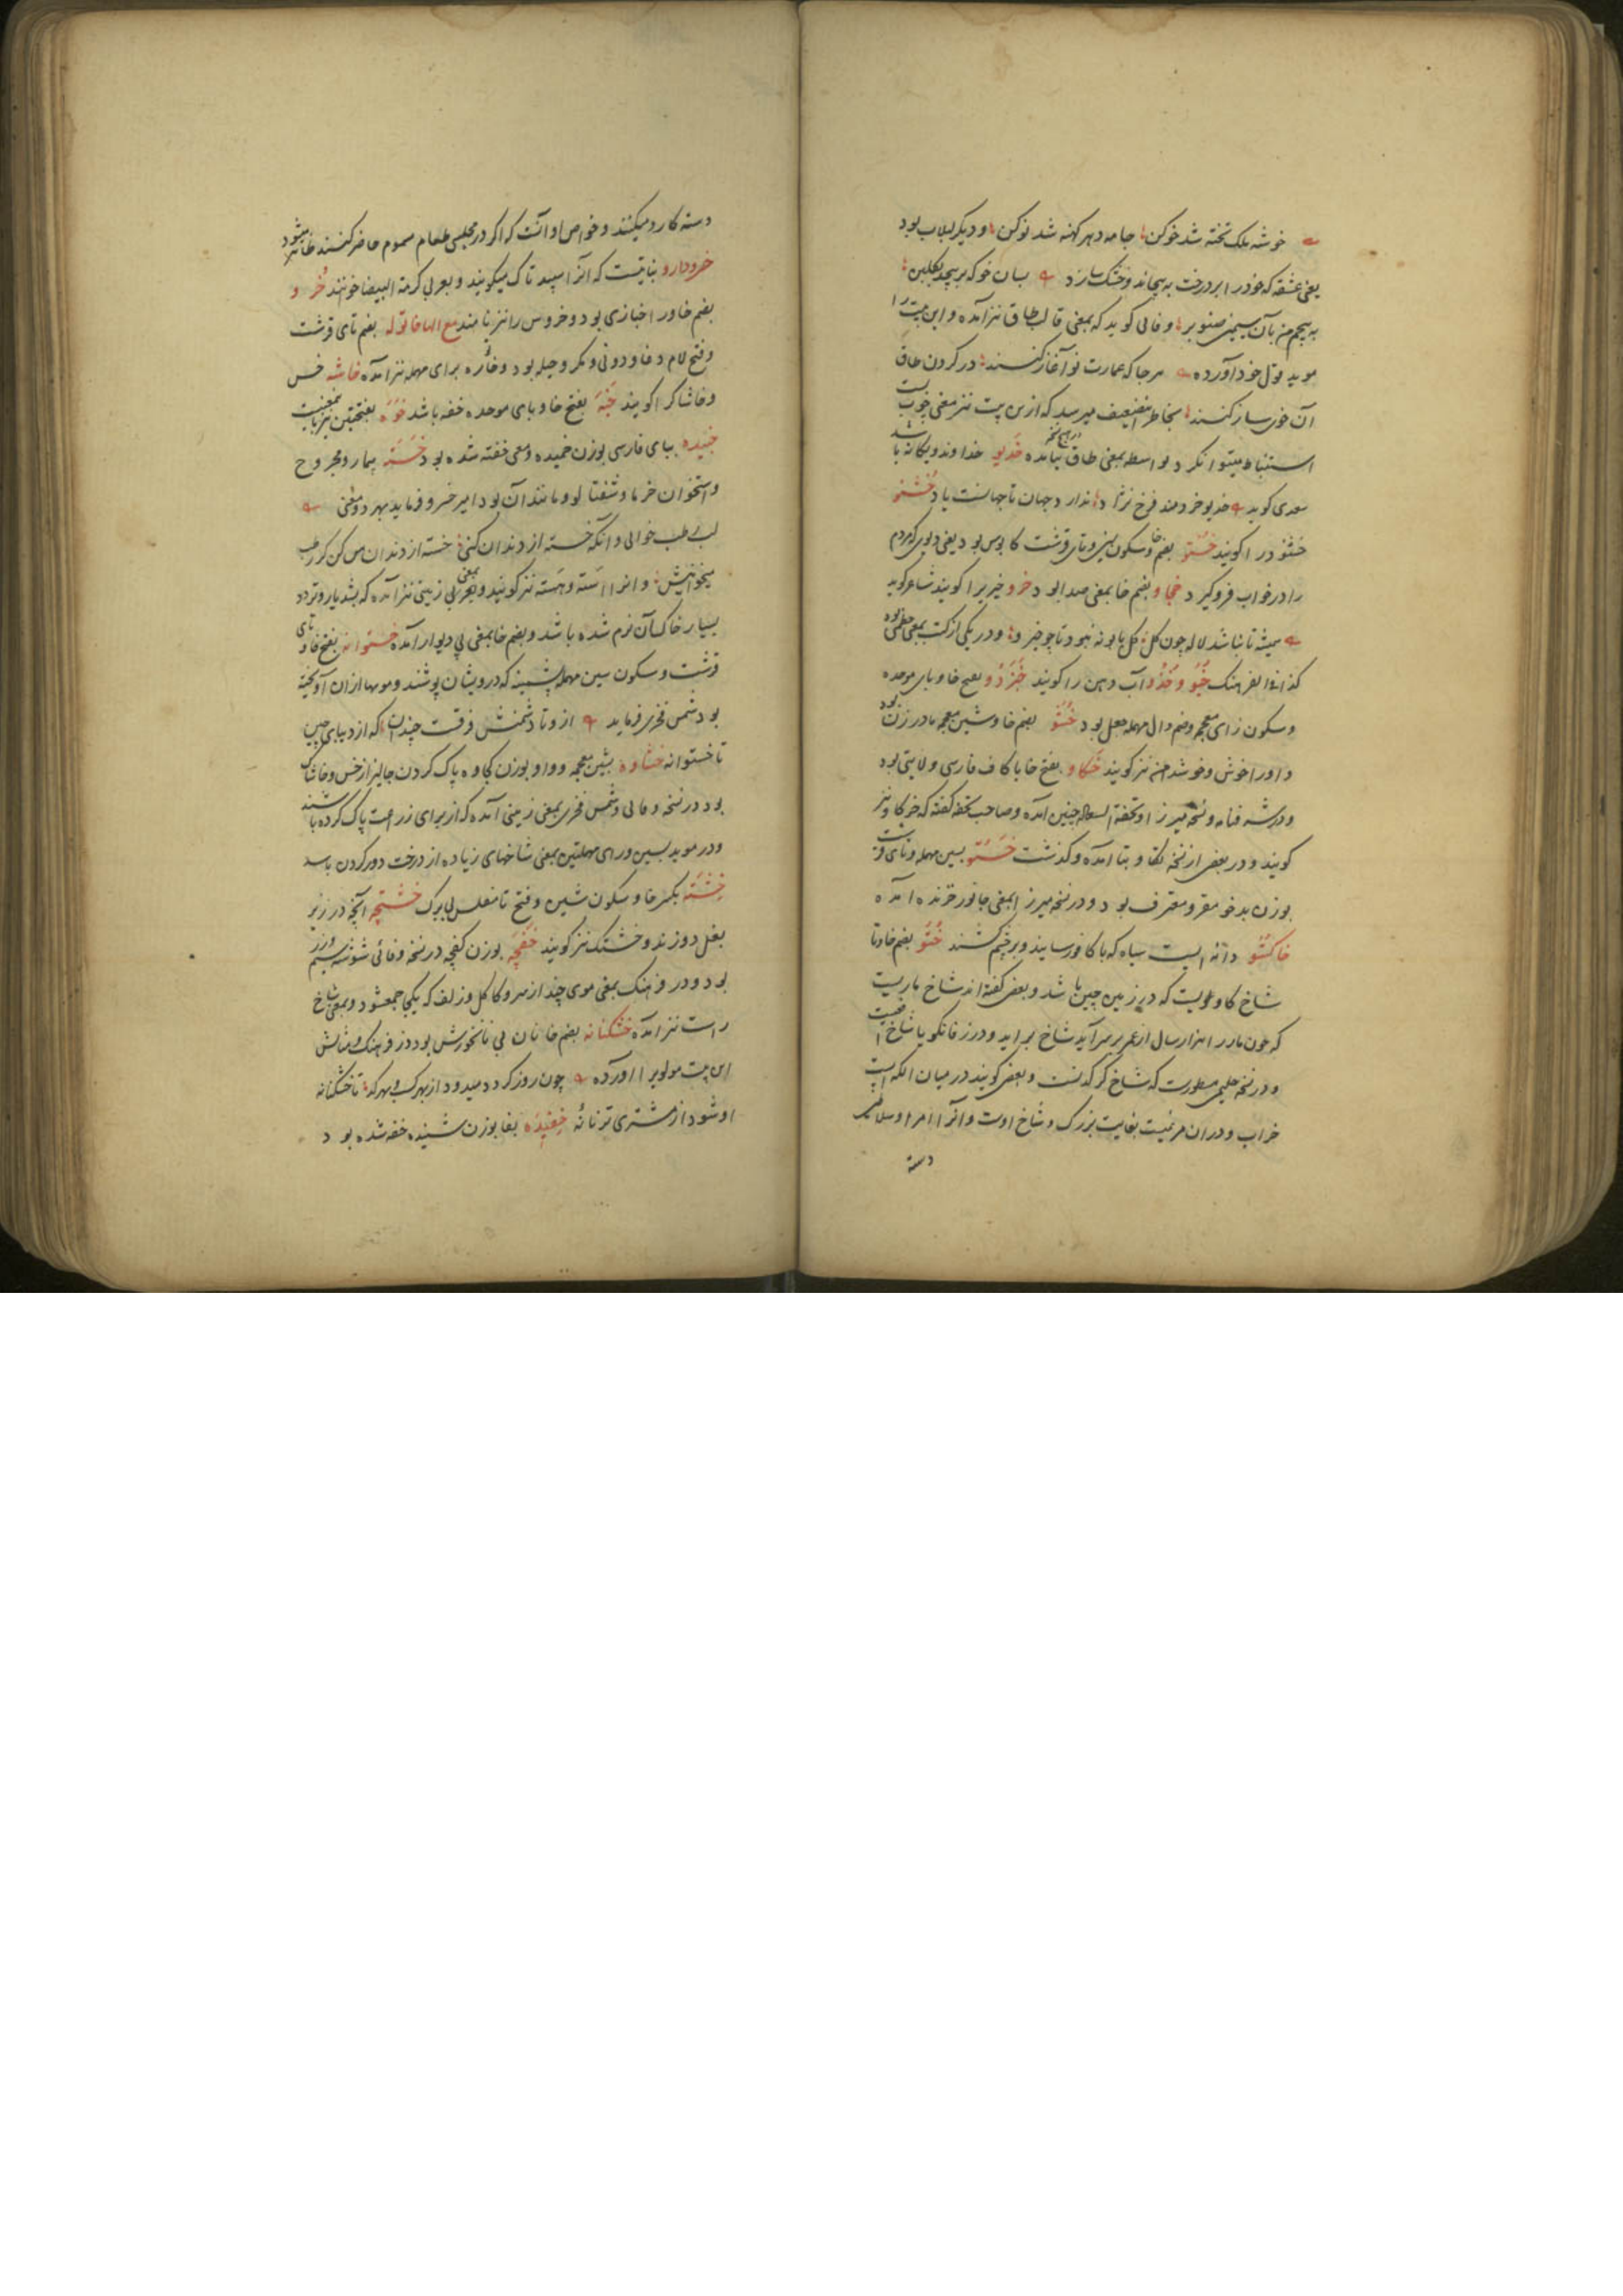 خوشه ملک تخته شد خو کن جامه دهر کهنه شد نو کن و دیگر لبلاب بود
یعنی عشقه که خود را بر درخت به پیچاند و خشک سازد بسان خو که بر پیچد بگلبن
به پیچم من بآن سیمین صنوبر و وفائی گوید که بمعنی قالب طاق نیز آمده و این بیت را
موید قول خود آورده هر جا که عمارت نو آغاز کنند در گردن طاق
آن خوی ساز کنند بخاطر این ضعیف میرسد که ازین بیت نیز معنی چوب بست
استنباط میتوان کرد بواسطه بمعنی طاق در هیچ نسخه نیامده خدیو خداوند و یگانه باشد
سعدی گوید خدیو خردمند فرخ نژاد ندارد جهان تا جهانست یاد خشنو
خشنود را گویند خستو بضم خا و سکون سین و تای قرشت کابوس بود یعنی دیوی که مردم
را در خواب فرو گیرد خجاو بضم خا بمعنی صدا بود خرو خیری را گویند شاعر گوید
همیشه تا نباشد لاله چون گل گل بابونه نبود تا چو خیرو و در یکی از کتب بمعنی خطمی بود
کذا فی الفرهنگ خیو و خدو آب دهن را گویند خبزدو بفتح خا و بای موحده
و سکون زای معجمه و ضم دال مهمله جعل بود خشو بضم خا و شین معجمه مادر زن بود
و او را خوش و خوشدامن نیز گویند خکاو بفتح خا با کاف فارسی ولایتی بود
و در شرفنامه و نسخه میرزا و تحفة السعاده چنین آمده و صاحب تحفه گفته که خرکاو نیز
گویند و در بعضی از نسخه بکا و بتا آمده و گذشت خستو بسین مهمله و تای قرشت
بوزن بدخو مقر و معترف بود و در نسخه میرزا بمعنی جانور خزنده آمده
خاکشو دانه ایست سیاه که با کافور سایند و بر چشم کشند ختو بضم خا و تا
شاخ گاویست که در زمین چین باشد و بعضی گفته اند شاخ ماریست
که چون مار را هزار سال از عمر بر سر آید شاخ برآید و در زفانگویا شاخ افعیست
و در نسخه حلیمی مسطورست که شاخ کرکدنست و بعضی گویند در میان الکه ایست
خراب و در آن مرغیست بغایت بزرگ و شاخ اوست و آنرا امرا و سلاطین
دسته
دسته کارد میکنند و خواص او آنست که اگر در مجلس طعام مسموم حاضر کنند ظاهر میشود
خرودارو نباتیست که آنرا سپید تاک میگویند و بعربی کرمة البیضا خوانند خرو
بضم خا و را خبازی بود و خروس را نیز نامند مع الها خاتوله بضم تای قرشت
و فتح لام دغا و دوئی و مکر و حیله بود و خاره برای مهمله نیز آمده خاشه خس
و خاشاک را گویند خبه بفتح خا و بای موحده خفه باشد خوه بفتحتین نیز باین معنیست
خپیده ببای فارسی بوزن خمیده و معنی خفته شده بود خسته بیمار و مجروح
و استخوان خرما و شفتالو و مانند آن بود امیر خسرو فرماید بهر دو معنی
لب طب خوانی و آنگه خسته از دندان کنی خسته از دندان من کن گر رطب
میخوانیش و آنرا استه و هسته نیز گویند و بعربی بمعنی زمینی نیز آمده که بشدیار و تردد
بسیار خاک آن نرم شده باشد و بضم خا بمعنی پی دیوار آمده خستوانه بفتح خا و تای
قرشت و سکون سین مهمله پشمینه که درویشان پوشند و مویها از آن آویخته
بود شمس فخری فرماید از وتا دشمنش فرقست چندان که از دیبای چین
تا خستوانه خشاوه بشین معجمه و واو بوزن کجاوه پاک کردن جالیز از خس و خاشاک
بود در نسخه وفائی و شمس فخری بمعنی زمینی آمده که از برای زراعت پاک کرده باشند
و در موید بسین و رای مهملتین بمعنی شاخهای زیاده از درخت دور کردن باشد
خشته بکسر خا و سکون شین و فتح تا مفلس بی برگ خشتچه آنچه در زیر
بغل دوزند و خشتک نیز گویند خفچه بوزن کفچه در نسخه وفائی شوشه سیم و زر
بود و در فرهنگ بمعنی موی چند از سر و کاکل و زلف که یکجا جمع شود و بمعنی شاخ
راست نیز آمده خشکنانه بضم خا نان بی نانخورش بود در فرهنگ و مثالش
این بیت مولوی را آورده چون روز گردد میدود از بهر کسب و بهر کد تا خشکنانه
او شود از مشتری تر نانه خفیده بفا بوزن شنیده خفه شده بود